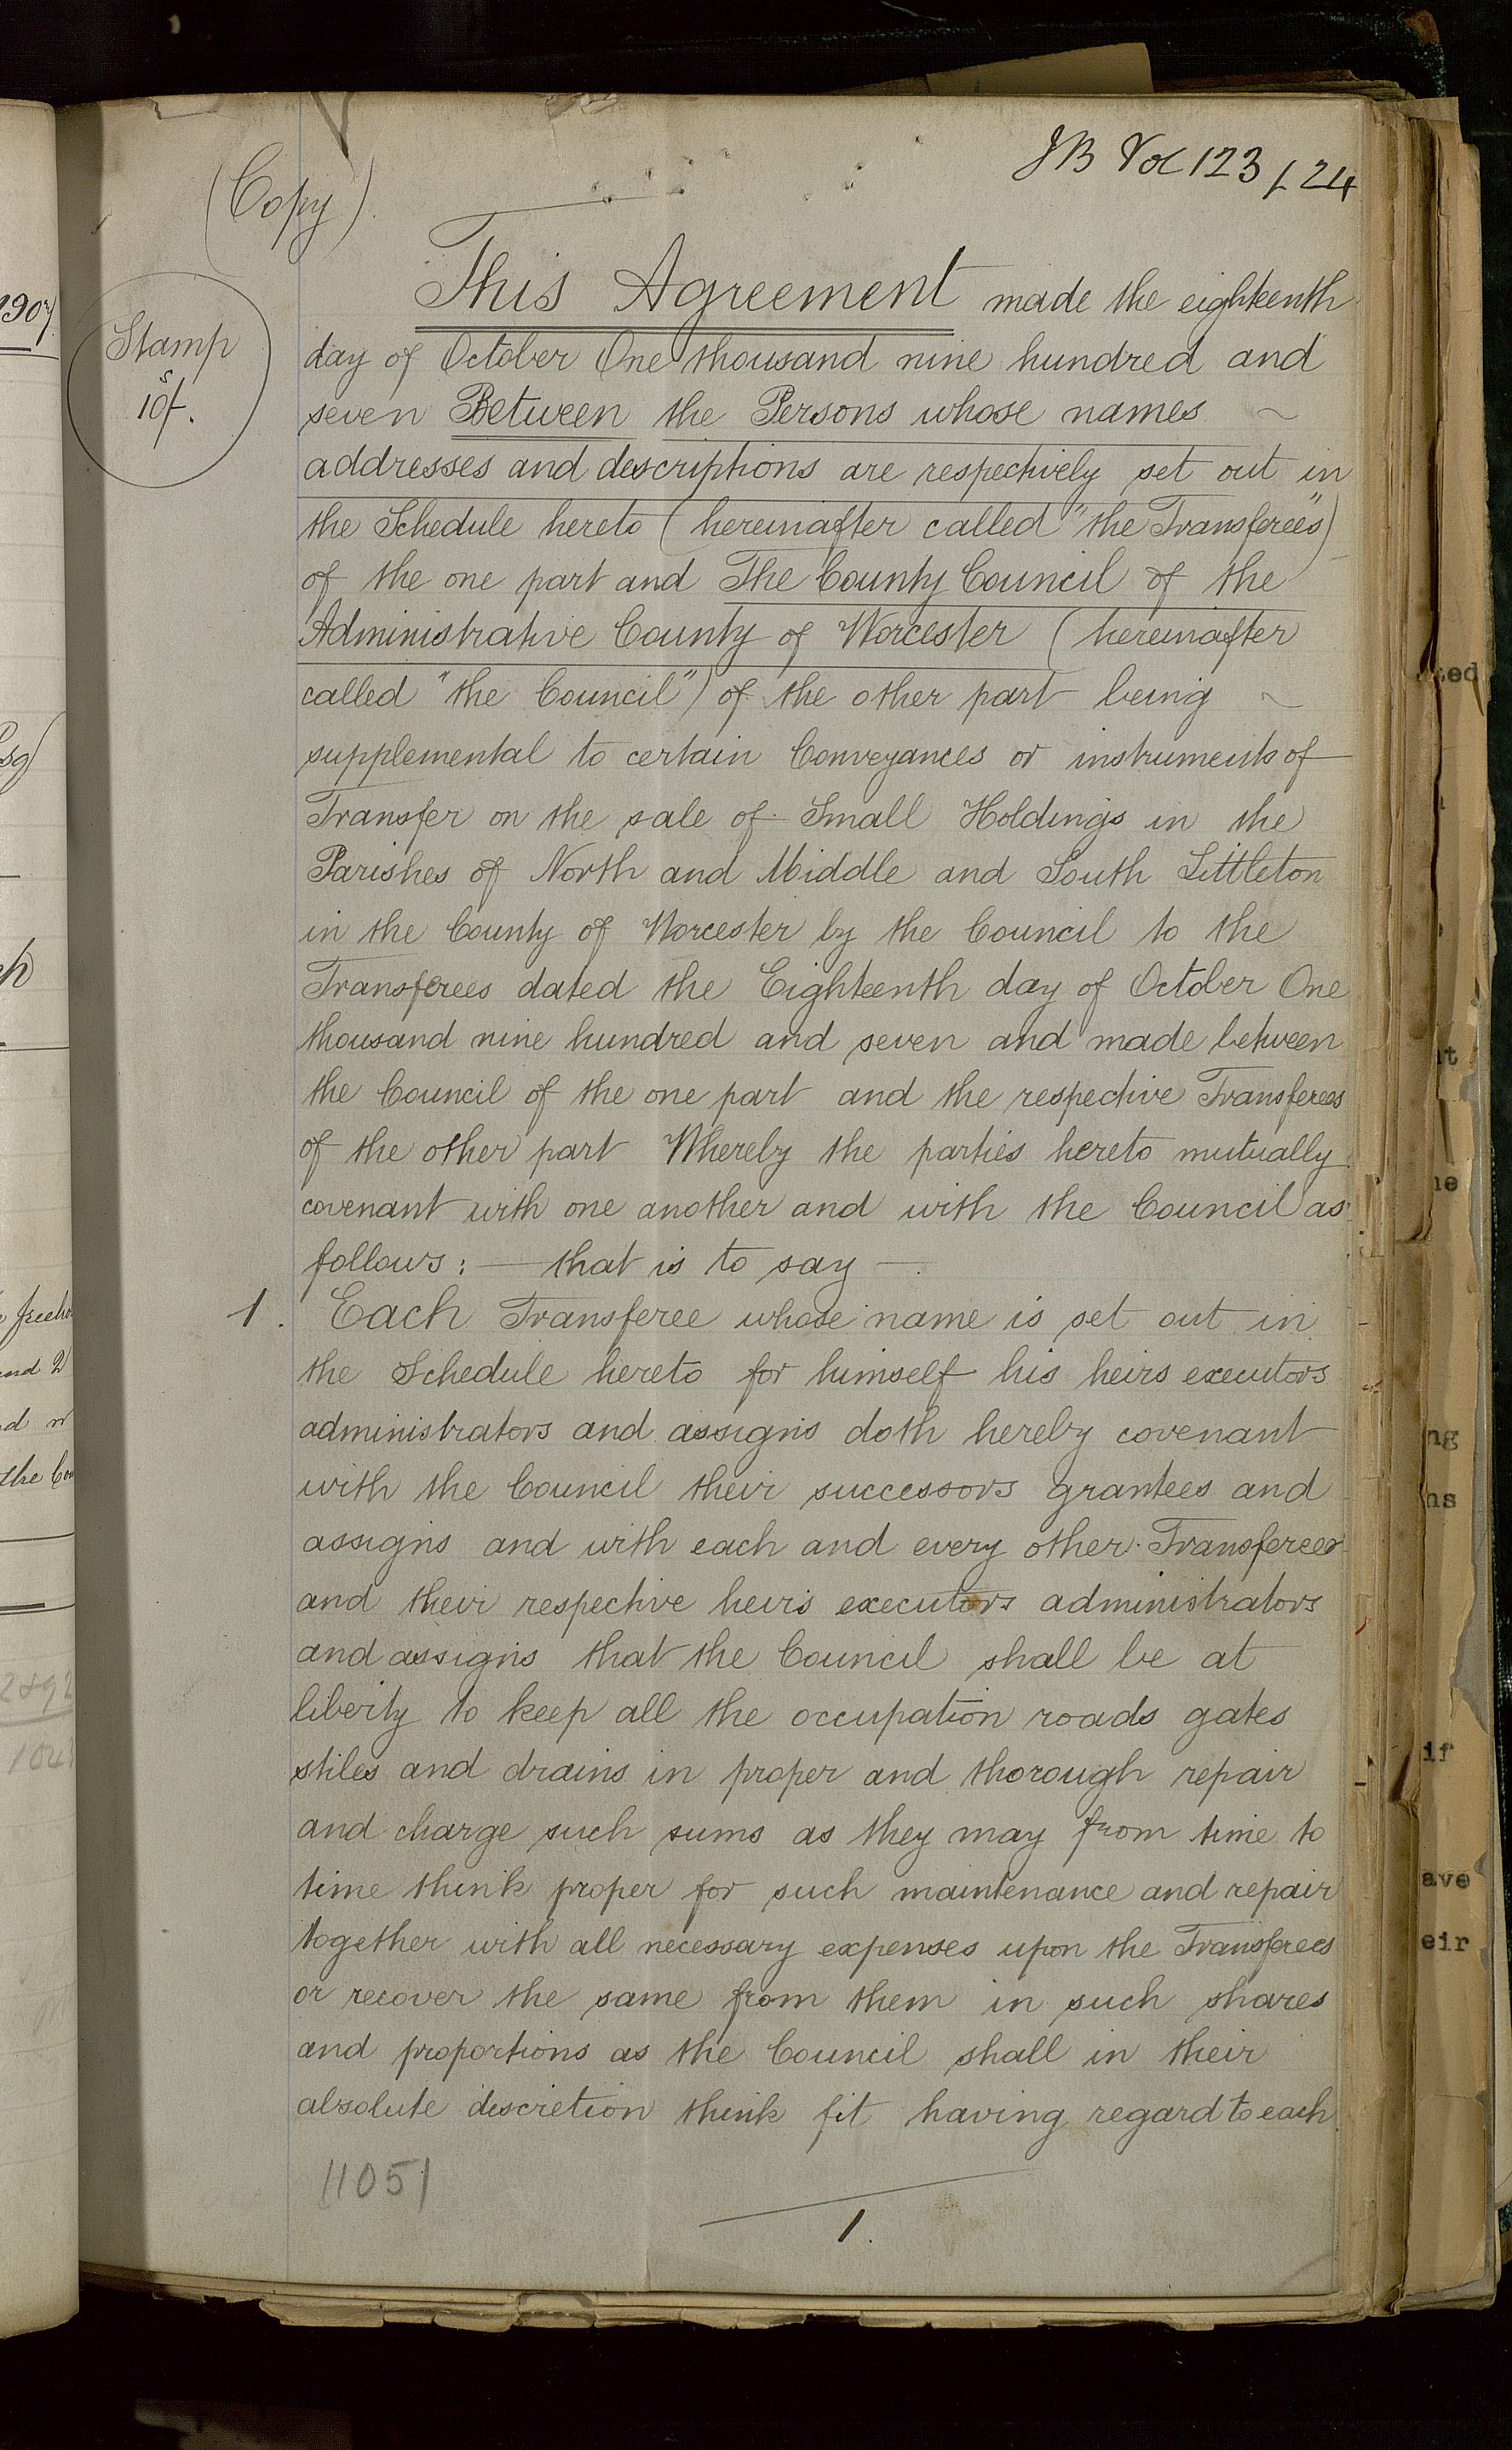 JB Vol 123 f 24
(Copy).
Stamp
s
10/-.
This Agreement made the eighteenth
day of October One thousand nine hundred and
seven Between the Persons whose names ~
addresses and descriptions are respectively set out in
the Schedule hereto (hereinafter called "the Transferees")
of the one part and The County Council of the
Administrative County of Worcester (hereinafter
called "the Council") of the other part being ~
supplemental to certain Conveyances or instruments of
Transfer on the sale of Small Holdings in the
Parishes of North and Middle and South Littleton
in the County of Worcester by the Council to the
Transferees dated the Eighteenth day of October One
thousand nine hundred and seven and made between
the Council of the one part and the respective Transferees
of the other part Whereby the parties hereto mutually
covenant with one another and with the Council as
follows: — that is to say —.
1. Each Transferee whose name is set out in
the Schedule hereto for himself his heirs executors
administrators and assigns doth hereby covenant
with the Council their successors grantees and
assigns and with each and every other Transferees
and their respective heirs executors administrators
and assigns that the Council shall be at
liberty to keep all the occupation roads gates
stiles and drains in proper and thorough repair
and charge such sums as they may from time to
time think proper for such maintenance and repair
together with all necessary expenses upon the Transferees
or recover the same from them in such shares
and proportions as the Council shall in their
absolute discretion think fit having regard to each
11051
1.